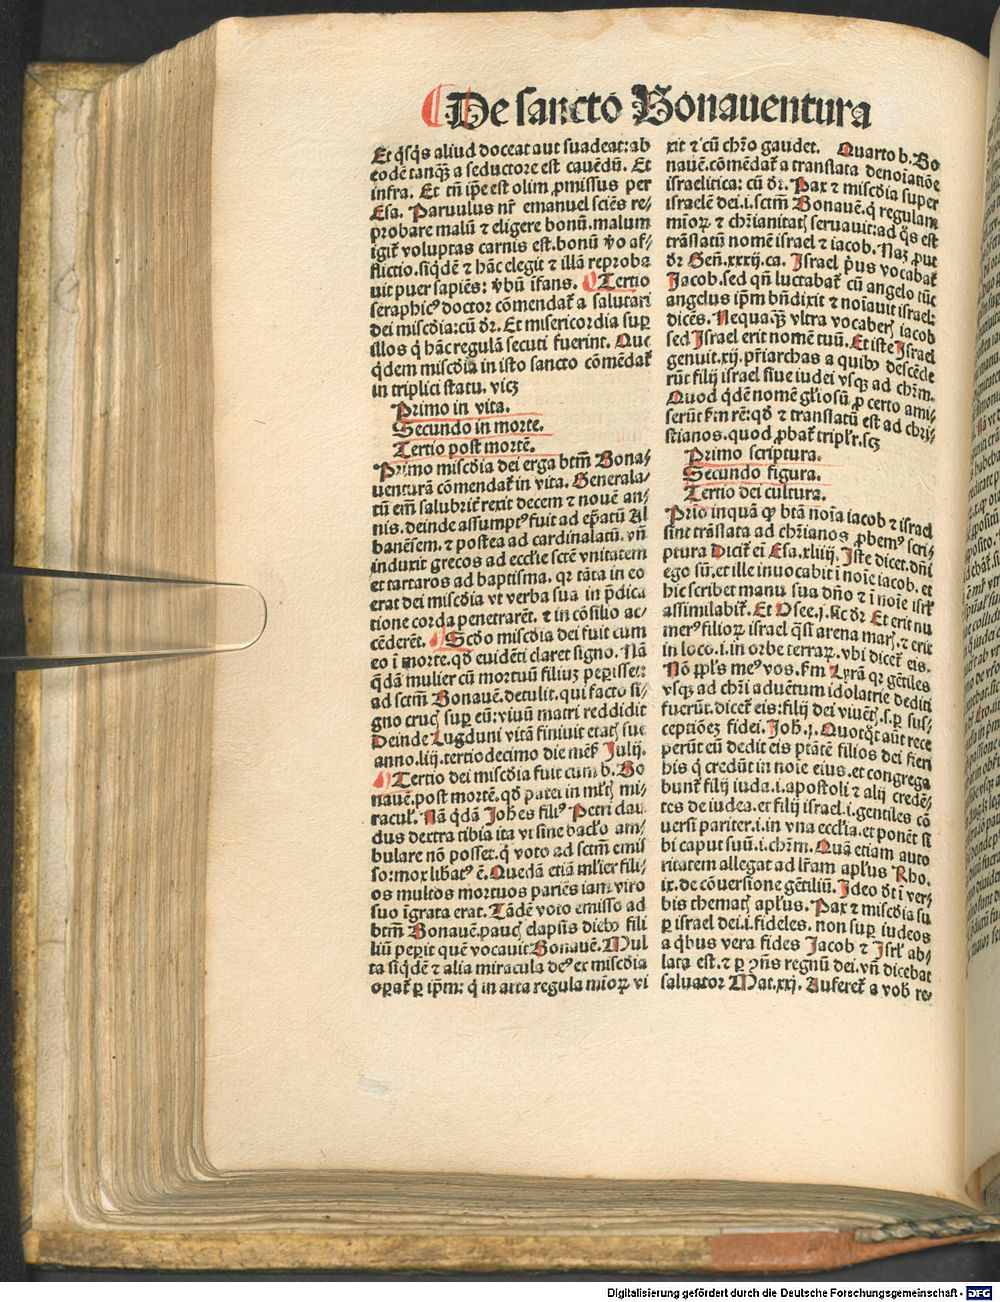 De sancto Bonauentura
Et q̃sq̃s aliud doceat aut suadeat: ab
eodē tanq̃ȝ a seductore est cauēdū. Et
infra. Et tñ ip̃e est olim ꝓmissus per
Esa. Paruulus nr̃ emanuel sciēs re⸗
probare malū ⁊ eligere bonū. malum
igit̃ voluptas carnis est. bonū ṽo af⸗
flictio. siq̃dē ⁊ hāc elegit ⁊ illā reproba
uit puer sapiēs: ṽbū īfans. Tertio
seraphicꝰ doctor cōmendat̃ a salutari
dei miscd̃ia: cū dr̃. Et misericordia suꝑ
illos q̃ hāc regulā secuti fuerint. Que
q̃dem miscd̃ia in isto sancto cōmēdat̃
in triplici statu. vicȝ
Primo in vita.
Secundo in morte.
Tertio post mortē.
Primo miscd̃ia dei erga btm̃ Bona⸗
uenturā cōmendat̃ in vita. Generala⸗
tū em̃ salubrit̃ rexit decem ⁊ nouē an⸗
nis. deinde assumptꝰ fuit ad ep̃atū Al
banēsem. ⁊ postea ad cardinalatū. vñ
induxit grecos ad eccl̃ie sct̃e vnitatem
et tartaros ad baptisma. qꝛ tāta in eo
erat dei miscd̃ia vt verba sua in p̃dica
tione corda penetrarēt. ⁊ in cōsilio ac⸗
cēderēt. Scd̃o miscd̃ia dei fuit cum
eo ī morte. qd̃ euidēti claret signo. Nā
q̃dā mulier cū mortuū filiuȝ peꝑisset:
ad sctm̃ Bonauē. detulit. qui facto si⸗
gno crucꝭ suꝑ eū: viuū matri reddidit
Deinde Lugduni vitā finiuit etatꝭ sue
anno. liij. tertiodecimo die mēs̃ Julij.
Tertio dei miscd̃ia fuit cum b. Bo
nauē. post mortē. qd̃ patet in ml̃tꝭ mi⸗
racul̃. Nā q̃dā Joh̃es filiꝰ Petri clau
dus dextra tibia ita vt sine bacl̃o am⸗
bulare nō posset. q̃ voto ad sctm̃ emis
so: mox libatꝰ ē. Quedā etiā ml̃ier fili⸗
os multos mortuos pariēs iam viro
suo īgrata erat. Tādē voto emisso ad
btm̃ Bonauē. paucꝭ elapsis diebꝰ fili
liū peꝑit quē vocauit Bonauē. Mul
ta siq̃dē ⁊ alia miracula deꝰ ex miscd̃ia
oꝑat̃ ꝑ ip̃m: q̃ in arta regula mīoꝝ vi
xit ⁊ cū chr̃o gaudet. Quarto b. Bo
nauē. cōmēdat̃ a translata denoīatiōe
israelitica: cū dr̃. Pax ⁊ miscd̃ia super
israelē dei. i. sctm̃ Bonauē. q̃ regulam
mīoꝝ ⁊ chr̃ianitatꝭ seruauit: ad q̃s est
trāslatū nomē israel ⁊ iacob. Naȝ ꝓut
dr̃ Geñ. xxxij. ca. Israel p̃us vocabat̃
Jacob. sed qñ luctabat̃ cū angelo tūc
angelus ip̃m bñdixit ⁊ noīauit israel:
dicēs. Nequaq̃ȝ vltra vocaberꝭ iacob
sed Israel erit nomē tuū. Et iste Israel
genuit. xij. pr̃iarchas a quibꝰ descēde
rūt filij israel siue iudei vsqȝ ad chr̃m.
Quod q̃dē nomē gl̃iosū ꝓ certo ami⸗
serūt ẜm rē: qd̃ ⁊ translatū est ad chri⸗
stianos. quod ꝓbat̃ tripl̃r. scȝ
Primo scriptura.
Secundo figura.
Tertio dei cultura.
Prīo inquā qꝙ btā noīa iacob ⁊ israel
sint trāslata ad chr̃ianos ꝓbemꝰ scri⸗
ptura Dicit̃ eī Esa. xliiij. Iste dicet. dñi
ego sū. et ille inuocabit ī noīe iacob. et
hic scribet manu sua dño ⁊ ī noīe isrl̃
assimilabit̃. Et Osee. j. sic dr̃ Et erit nu
merꝰ filioꝝ israel q̃si arena marꝭ. ⁊ erit
in loco. i. in orbe terraꝝ. vbi dicet̃ eis.
Nō ppl̃s meꝰ vos. ẜm Lyrā qꝛ gētiles
vsqȝ ad chr̃i aduētum idolatrie dediti
fuerūt. dicet̃ eis: filij dei viuētꝭ. s. ꝑ sus⸗
ceptiōeȝ fidei. Joh. j. Quotq̃t aūt rece
perūt eū dedit eis ptāte̅ filios dei fieri
his q̃ credūt in noīe eius. et congrega
bunt̃ filij iuda. i. apostoli ⁊ alij credē⸗
tes de iudea. et filij israel. i. gentiles cō
uersi pariter. i. in vna eccl̃ia. et ponēt si
bi caput suū. i. chr̃m. Quā etiam auto
ritatem allegat ad lr̃am apl̃us Rho.
ix. de cōuersione gētiliū. Ideo dr̃ ī ver⸗
bis thematꝭ apl̃us. Pax ⁊ miscd̃ia su
ꝑ israel dei. i. fideles. non suꝑ iudeos
a q̃bus vera fides Jacob ⁊ Isrl̃ ab⸗
lata est. ⁊ ꝑ ꝯñs regnū dei. vñ dicebat
saluator Mat. xxj. Auferet̃ a vob̃ re⸗
Digitalisierung gefördert durch die Deutsche Forschungsgemeinschaft - DFG